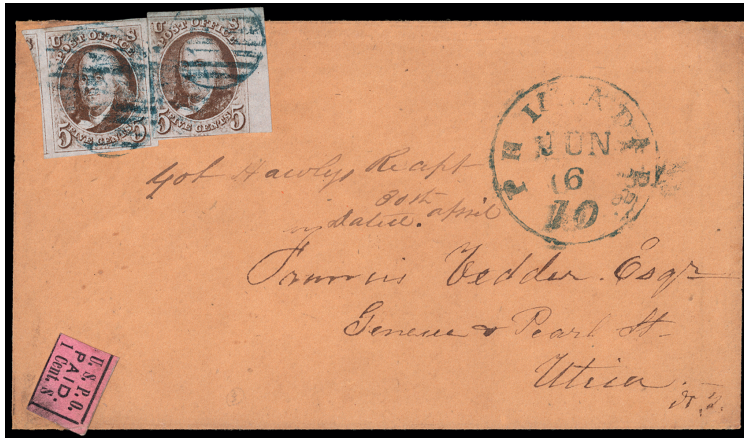 U S
POST OFFICE
FIVE CENTS
5 5
U S
POST OFFICE
FIVE CENTS
5 5
PHILADA
JUN
16
10
Got Hawleys Recpt
30th
April
Francis Vedder. Esqr
Genesee & Pearl St.
Utica
U.S.P.O.
PAID.
1 Cent. S